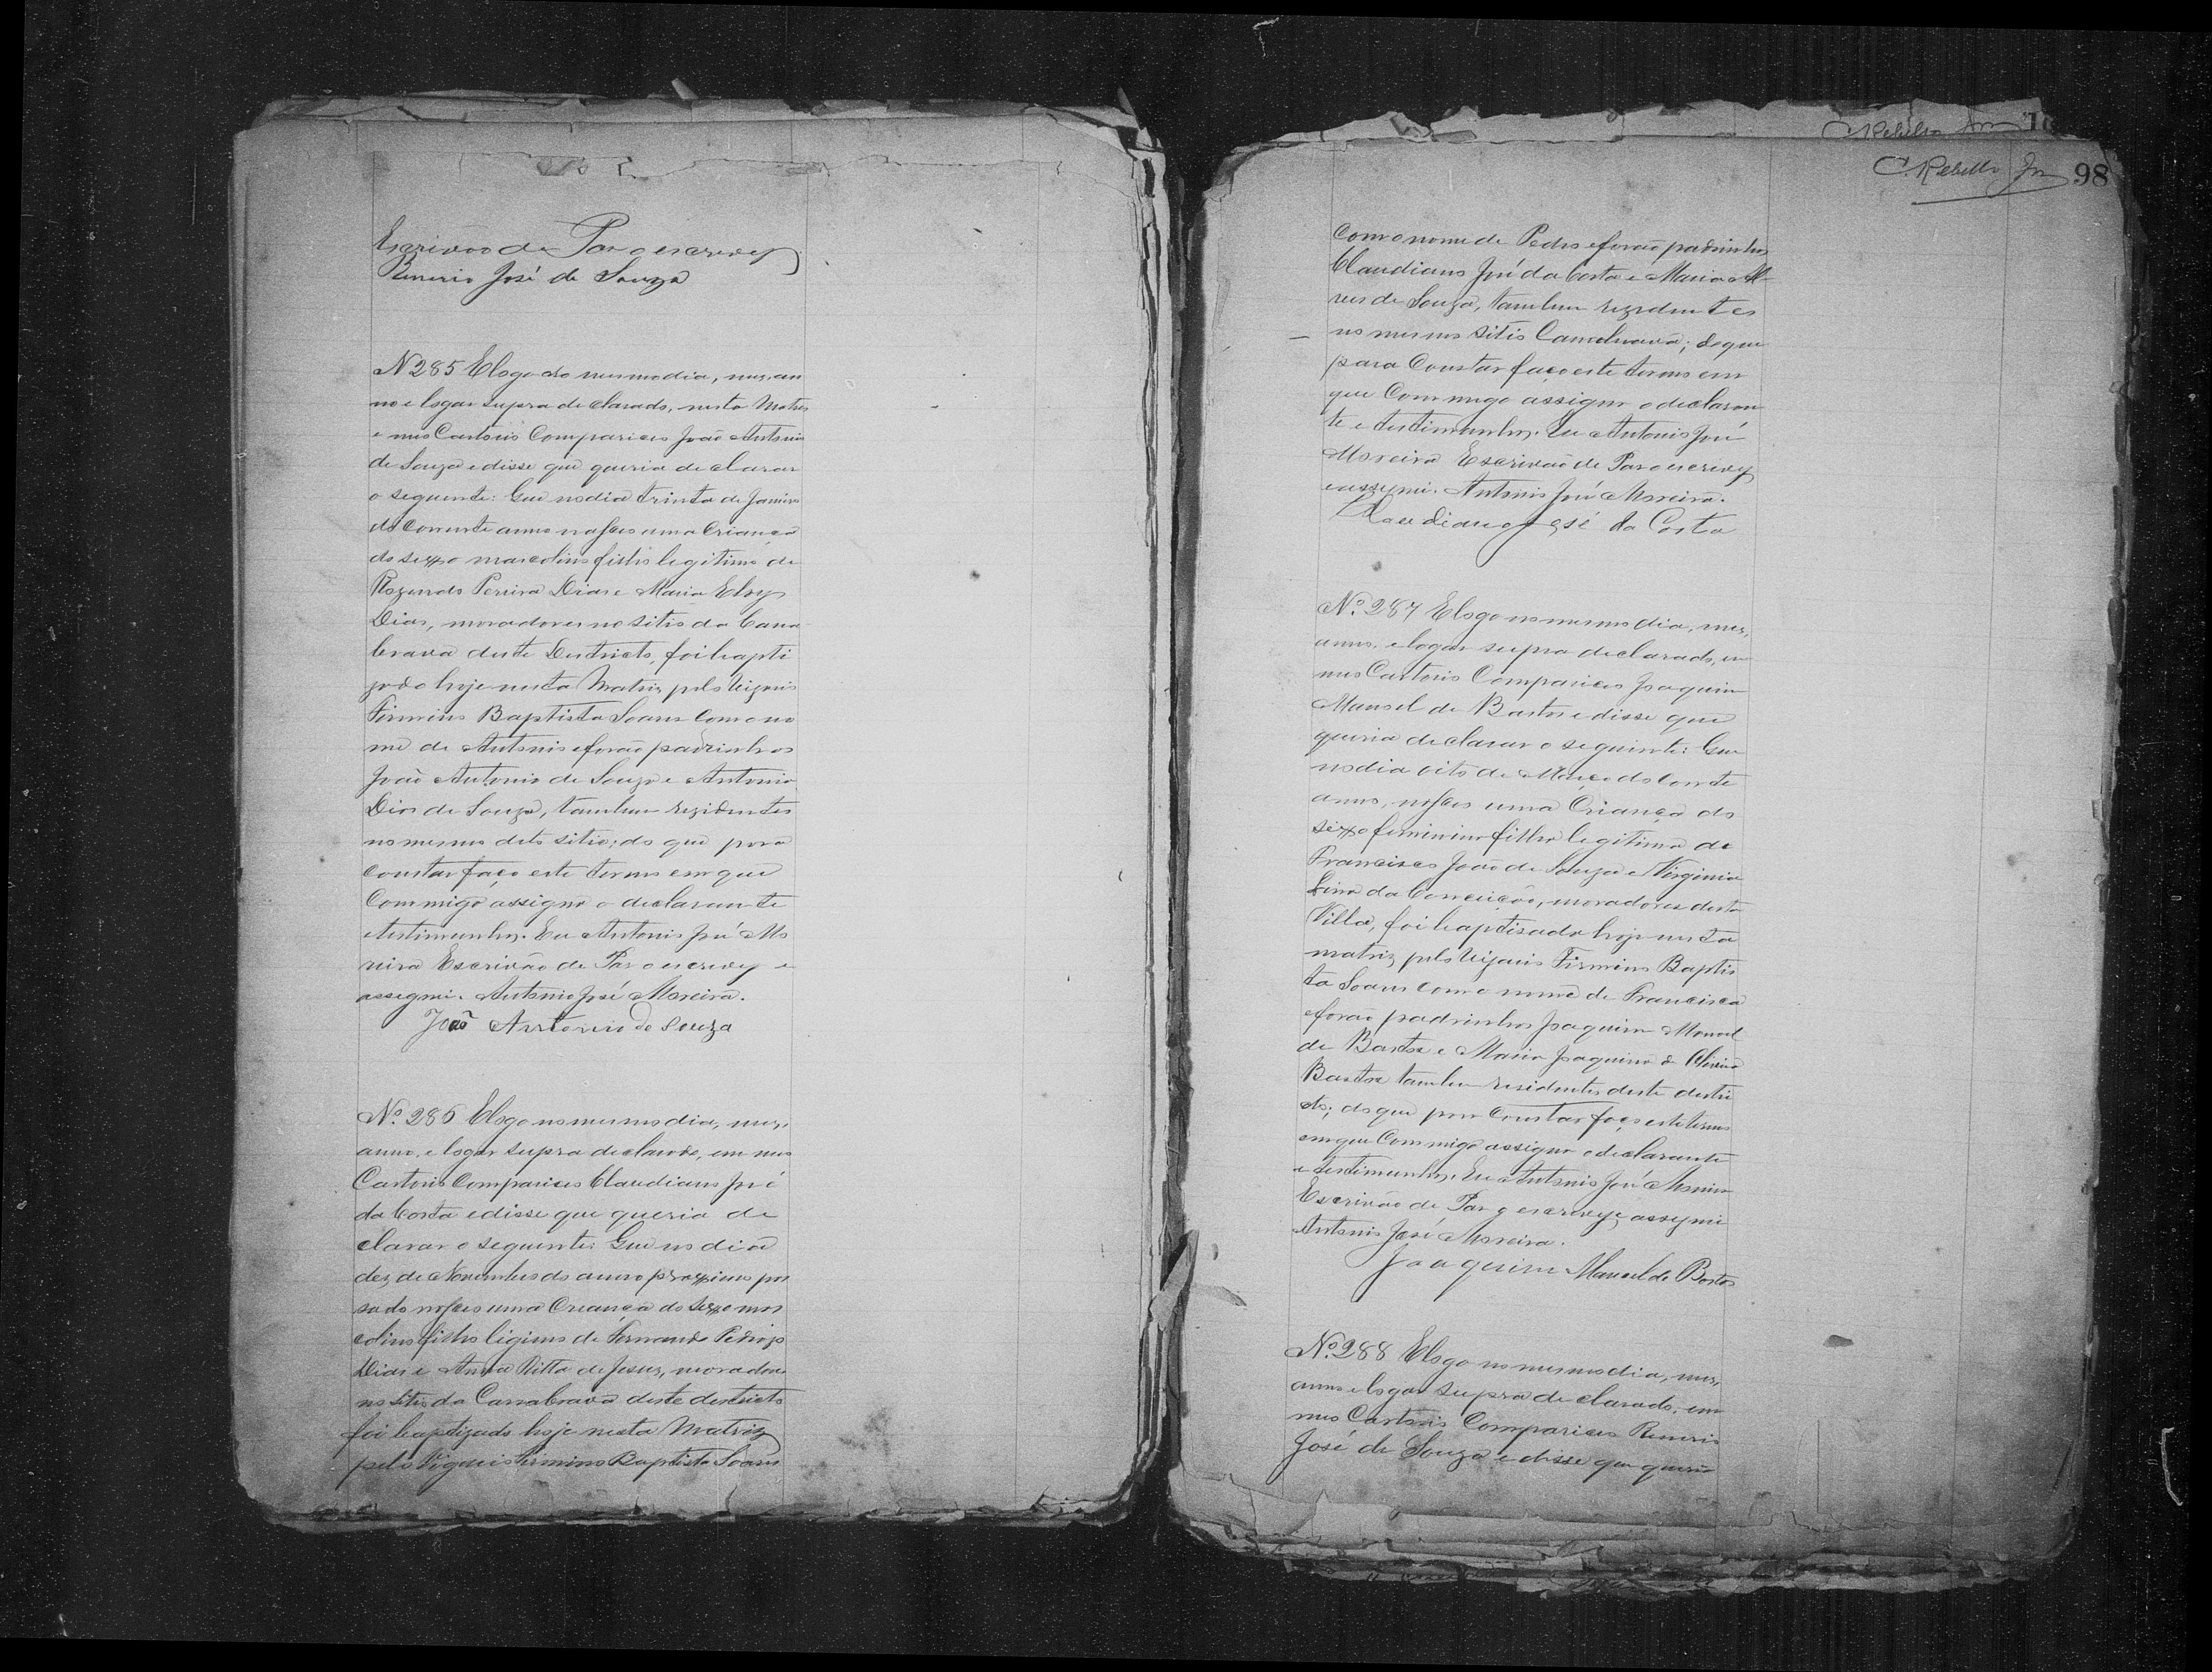 Escrivão de Paz o escrevy
Renerio José de Souza
N 285 E logo no mesmo dia, mez, an
no e logar supra declarado, nesta Matriz
e meo Cartorio Compariceo João Antonio
de Souza e disse que queria declarar
o seguente: Que no dia trinta de Janeiro
do Corrente anno nasceo uma Criança
do sexxo mascolino filho legitimo de
Rozendo Pereira Dias e Maria Eloy
Dias, moradores no sitio da Cana
brava deste Destricto, foi bapti
zado hoje nesta Matriz pelo Vigario
Firmino Baptista Soares com o no
me de Antonio e forão padrinhos
João Antonio de Souza e Antonia
Dias de Souza, tambem rezidentes
no mesmo dito sitio; do que para
constar faço este termo em que
Commigo assigna o declarante
e testimunhas. Eu Antonio José Mo
reira Escrivão de Paz o escrevy e
assegnei. Antonio José Moreira.
João Antonio de Souza
Nº. 286 E logo no mesmo dia, mez,
anno, e logar supra declarado, em meo
Cartorio Compariceo Claudiano José
da Costa e disse que queria de
clarar o seguente: Que no dia
dez de Novembro do anno proxximo pas
sado nasceo uma Criança do sexxo mas
colino filho ligimo de Fernando Pedrozo
Dias e Anna Ritta de Jesuz, moradores
no sitio da Cannabrava deste destricto
foi baptizado hoje nesta Matriz
pelo Vigario Firmino Baptista Soares
C Rebello Jor
C. Rebello Jor 98
Com o nome de Pedro e forão padrinhos
Claudiano José da Costa e Maria Al
ves de Souza, tambem rezidentes
no mesmo sitio Cannabrava; do que
para Constar faço este termo em
que Commigo assigna o declaran
te e testimunhas. Eu Antonio José
Moreira Escrivão de Paz o escrevy
e assegnei. Antonio José Moreira.
Claudiano José da Costa
Nº. 287 E logo no mesmo dia, mez,
anno, e logar supra declarado, em
meo Cartorio Compariceo Joaquim
Manoel de Bastos e disse que
queria declarar o seguinte: Que
no dia oito de Março do Corrente
anno, nasceo uma Criança do
sexxo feminino filha legitima de
Francisco João de Souza e Virginia
Lina da Conceição, moradores desta
Villa, foi baptisada hoje nesta
matriz pelo Vigario Firmino Baptis
ta Soares com o nome de Francisca
e forão padrinhos Joaquim Manoel
de Bastos e Maria Joaquina de Oliveira
Bastos tambem residentes deste destri
cto; do que para Constar faço este termo
em que Commigo assigna o declarante
e testimunhas. Eu Antonio José Moreira
Escrivão de Paz o escrevy e assegnei
Antonio José Moreira.
Joaquim Manoel de Bastos
Nº. 288 E logo no mesmo dia, mez,
anno e logar supra declarado, em
meo Cartorio Compariceo Renerio
José de Souza e disse que queria